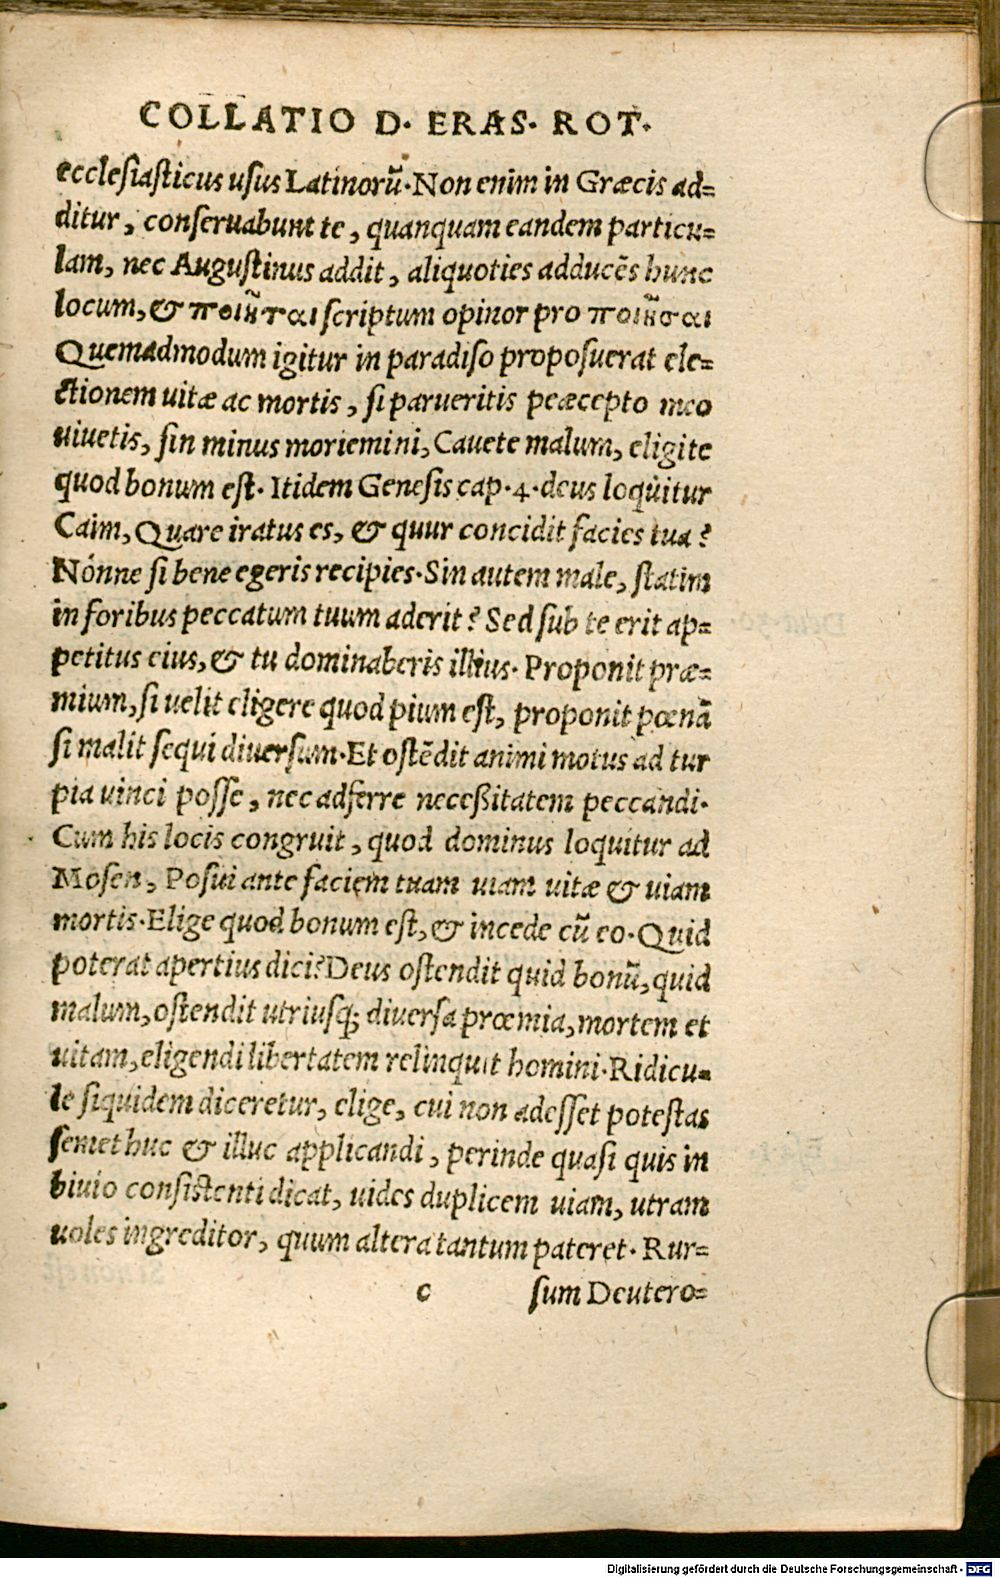 COLLATIO D. ERAS. ROT.
ecclesiasticus usus Latinorũ. Non enim in Græcis ad=
ditur, conseruabunt te, quanquam eandem particu=
lam, nec Augustinus addit, aliquoties adducẽs hunc
locum, & ποιῆται scriptum opinor pro ποιῆσαι
Quemadmodum igitur in paradiso proposuerat ele=
ctionem uitæ ac mortis, si parueritis peæcepto meo
uiuetis, sin minus moriemini, Cauete malum, eligite
quod bonum est. Itidem Genesis cap. 4. deus loquitur
Caim, Quare iratus es, & quur concidit facies tua?
Nónne si bene egeris recipies. Sin autem male, statim
in foribus peccatum tuum aderit? Sed sub te erit ap=
petitus eius, & tu dominaberis illius. Proponit præ=
mium, si uelit eligere quod pium est, proponit pœnã
si malit sequi diuersum. Et ostẽdit animi motus ad tur
pia uinci posse, nec adferre necessitatem peccandi.
Cum his locis congruit, quod dominus loquitur ad
Mosen, Posui ante faciem tuam uiam uitæ & uiam
mortis. Elige quod bonum est, & incede cũ eo. Quid
poterat apertius dici? Deus ostendit quid bonũ, quid
malum, ostendit utriusq; diuersa prœmia, mortem et
uitam, eligendi libertatem relinquit homini. Ridicu=
le siquidem diceretur, elige, cui non adesset potestas
semet huc & illuc applicandi, perinde quasi quis in
biuio consistenti dicat, uides duplicem uiam, utram
uoles ingreditor, quum altera tantum pateret. Rur=
c sum Deutero=
Digitalisierung gefördert durch die Deutsche Forschungsgemeinschaft - DFG